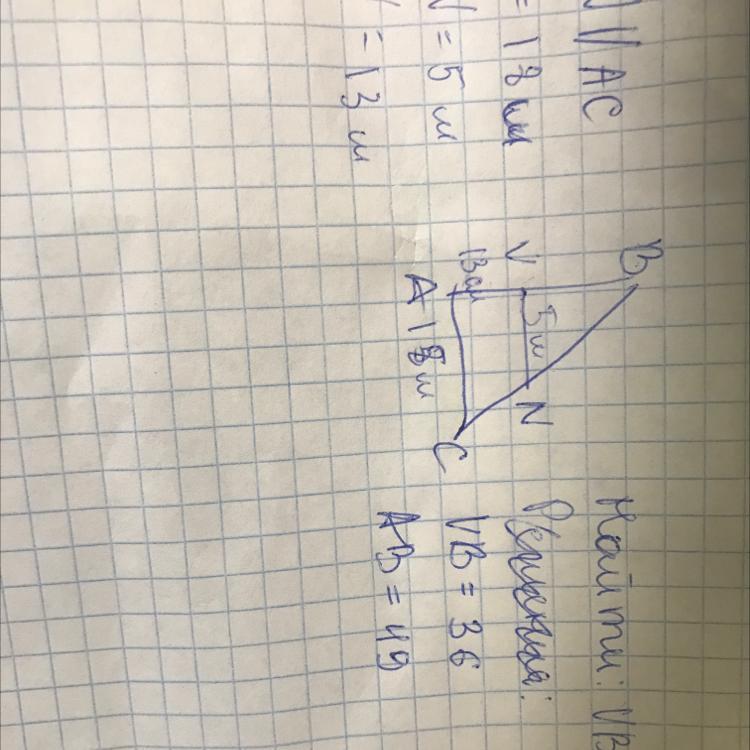 || AC
= 18 см
N = 5 м
= 13 м
B
V
N
5 м
13 см
A
18 м
C
Найти: VB
Решение:
VB = 36
AB = 49